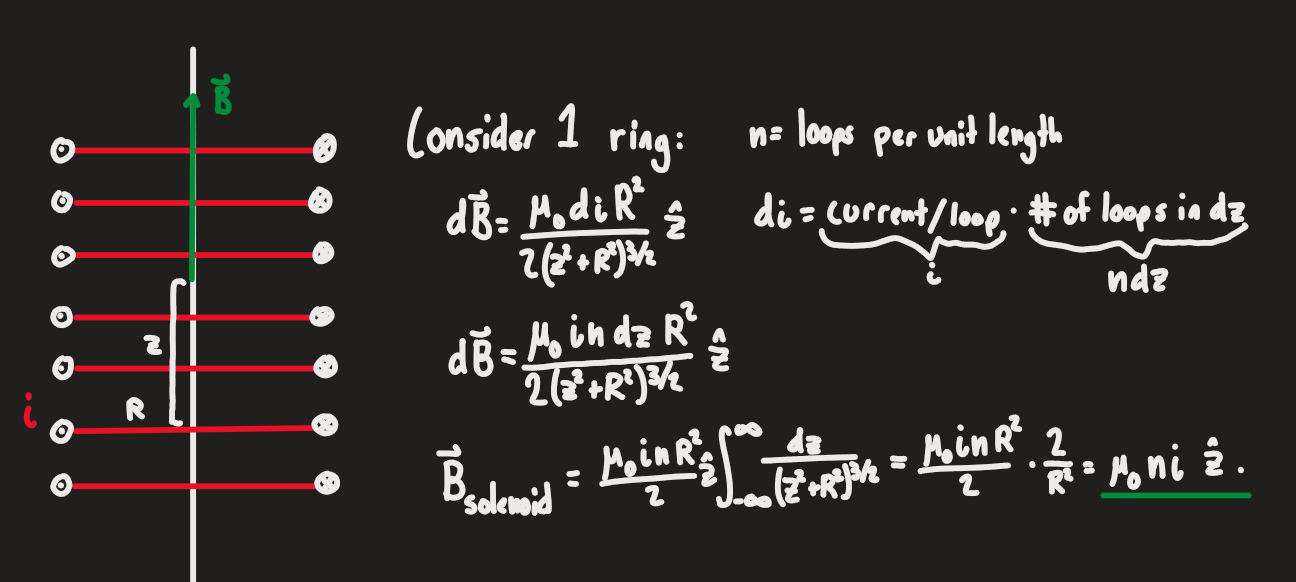 B⃗
z
R
i
Consider 1 ring:
n= loops per unit length
dB⃗ = μ₀ di R² / 2(z²+R²)^3/2 ẑ
di = current/loop · # of loops in dz
i
ndz
dB⃗ = μ₀ in dz R² / 2(z²+R²)^3/2 ẑ
B⃗ solenoid = μ₀ in R² / 2 ẑ ∫_-∞^∞ dz / (z²+R²)^3/2 = μ₀ in R² / 2 · 2 / R² = μ₀ ni ẑ.